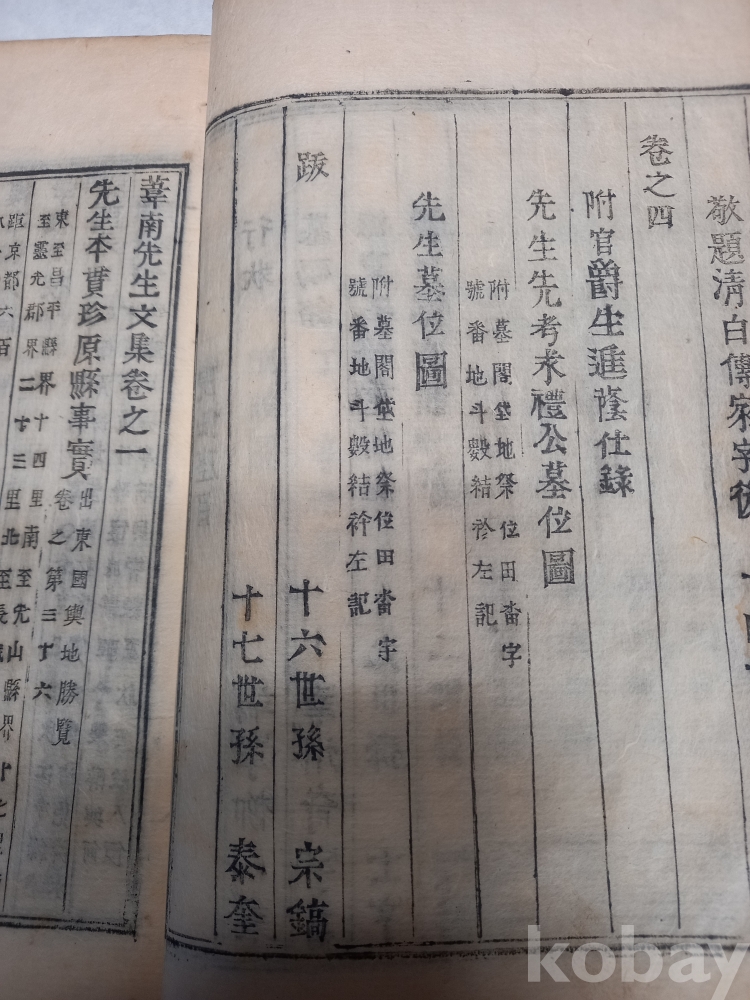 敬題清白傳家字後
卷之四
附官爵生進蔭仕錄
先生先考求禮公墓位圖
附墓閣垈地祭位田畓字
號番地斗數結衿左記
先生墓位圖
附墓閣垈地祭位田畓字
號番地斗數結衿左記
跋 十六世孫 宗鎬
十七世孫 泰奎
葦南先生文集卷之一
先生本貫珍原縣事實 出東國輿地勝覽
卷之第三十六
東至昌平縣界十四里南至光山縣界十七里
至靈光郡界二十三里北至長城
距京都六百
kobay